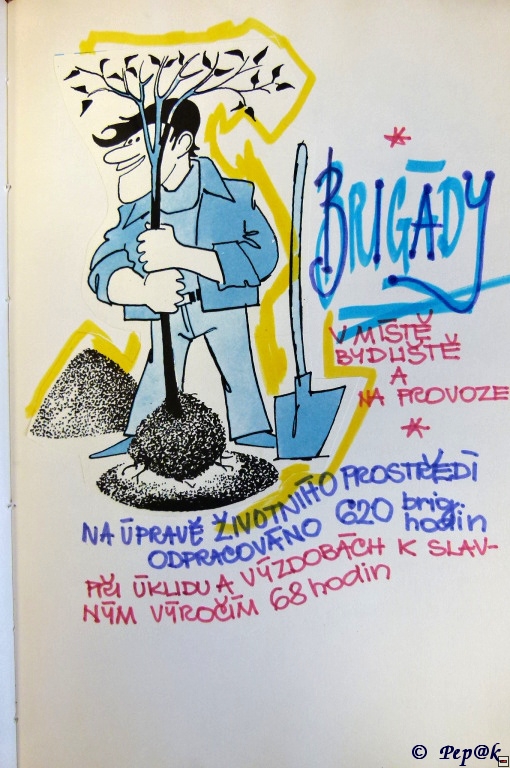 *
BRIGÁDY
V MÍSTĚ
BYDLIŠTĚ
A
NA PROVOZE
*
NA ÚPRAVĚ ŽIVOTNÍHO PROSTŘEDÍ
ODPRACOVÁNO 620 brig. hodin
PŘI ÚKLIDU A VÝZDOBÁCH K SLAV-
NÝM VÝROČÍM 68 hodin
© Pep@k